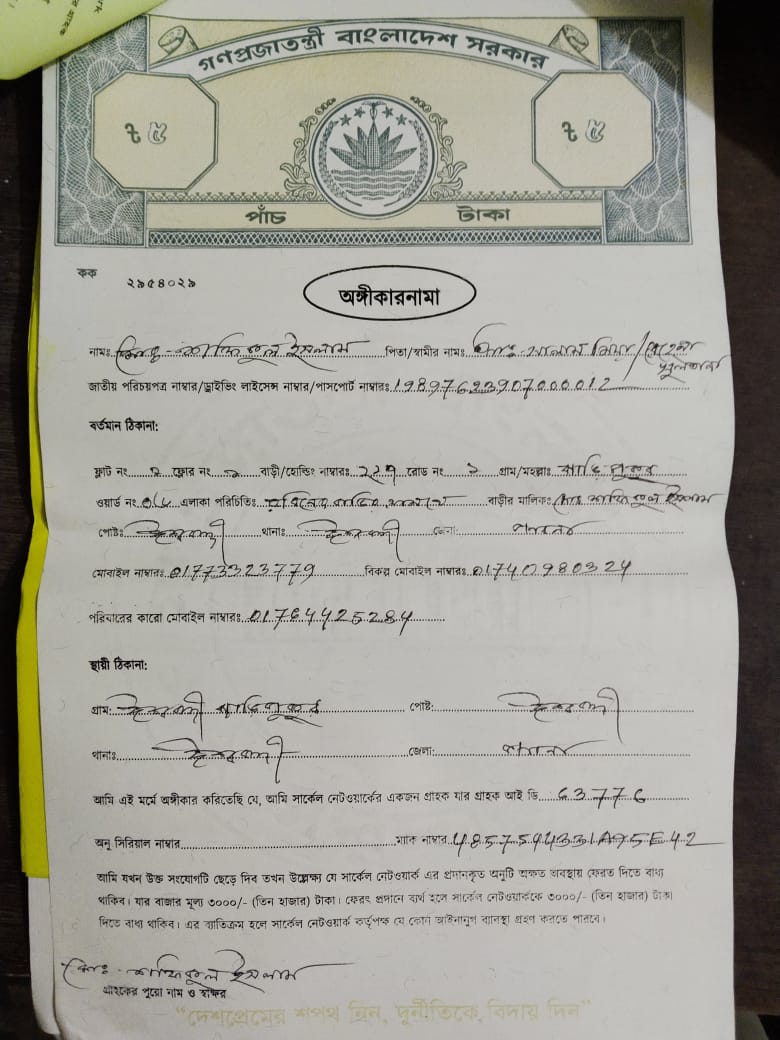 গণপ্রজাতন্ত্রী বাংলাদেশ সরকার
৳ ৫ ৳ ৫
পাঁচ টাকা
কক ২৯৫৪০২৯
অঙ্গীকারনামা
নামঃ মোঃ শফিকুল ইসলাম পিতা/স্বামীর নামঃ মোঃ
জাতীয় পরিচয়পত্র নাম্বার/ড্রাইভিং লাইসেন্স নাম্বার/পাসপোর্ট নাম্বারঃ 19897623907000012
বর্তমান ঠিকানা:
ফ্লাট নং ২ ফ্লোর নং বাড়ী/হোল্ডিং নাম্বারঃ রোড নং গ্রাম/মহল্লাঃ
ওয়ার্ড নং এলাকা পরিচিতিঃ বাড়ীর মালিকঃ মোঃ শফিকুল ইসলাম
পোষ্টঃ ঈশ্বরদী থানাঃ ঈশ্বরদী জেলা: পাবনা
মোবাইল নাম্বারঃ 01773323779 বিকল্প মোবাইল নাম্বারঃ 01740980324
পরিবারের কারো মোবাইল নাম্বারঃ 01764425284
স্থায়ী ঠিকানা:
গ্রাম: ঈশ্বরদী পোষ্ট: ঈশ্বরদী
থানাঃ ঈশ্বরদী জেলা: পাবনা
আমি এই মর্মে অঙ্গীকার করিতেছি যে, আমি সার্কেল নেটওয়ার্কের একজন গ্রাহক যার গ্রাহক আই ডি 63776
অনু সিরিয়াল নাম্বার ম্যাক নাম্বার 485754431A95E42
আমি যখন উক্ত সংযোগটি ছেড়ে দিব তখন উল্লেক্ষ্য যে সার্কেল নেটওয়ার্ক এর প্রদানকৃত অনুটি অক্ষত অবস্থায় ফেরত দিতে বাধ্য
থাকিব। যার বাজার মূল্য ৩০০০/- (তিন হাজার) টাকা। ফেরৎ প্রদানে ব্যর্থ হলে সার্কেল নেটওয়ার্ককে ৩০০০/- (তিন হাজার) টাকা
দিতে বাধ্য থাকিব। এর ব্যতিক্রম হলে সার্কেল নেটওয়ার্ক কর্তৃপক্ষ যে কোন আইনানুগ ব্যবস্থা গ্রহণ করতে পারবে।
মোঃ শফিকুল ইসলাম
গ্রাহকের পুরো নাম ও স্বাক্ষর
"দেশপ্রেমের শপথ নিন, দুর্নীতিকে বিদায় দিন"